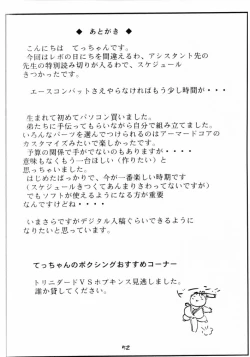 ◆ あとがき ◆
こんにちは　てっちゃんです。
今回はレボの日にちを間違えるわ、アシスタント先の
先生の特別読み切りが入るわで、スケジュール
きつかったです。
エースコンバットさえやらなければもう少し時間が・・・
生まれて初めてパソコン買いました。
弟たちに手伝ってもらいながら自分で組み立てました。
いろんなパーツを選んでつけられるのはアーマードコアの
カスタマイズみたいで楽しかったです。
予算の関係で手がでないのもありますが・・・・
意味もなくもう一台ほしい（作りたい）と
思っちゃいました。
はじめたばっかりで、今が一番楽しい時期です
（スケジュールきつくてあんまりさわってないですが）
でもソフトが使えるようになる方が重要
なんですけどね・・・・
いまさらですがデジタル入稿ぐらいできるように
なりたいと思っています。
てっちゃんのボクシングおすすめコーナー
トリニダードＶＳホプキンス見逃しました。
誰か貸してください。
52